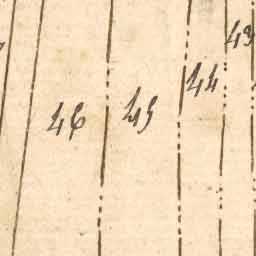 46 45 44 43